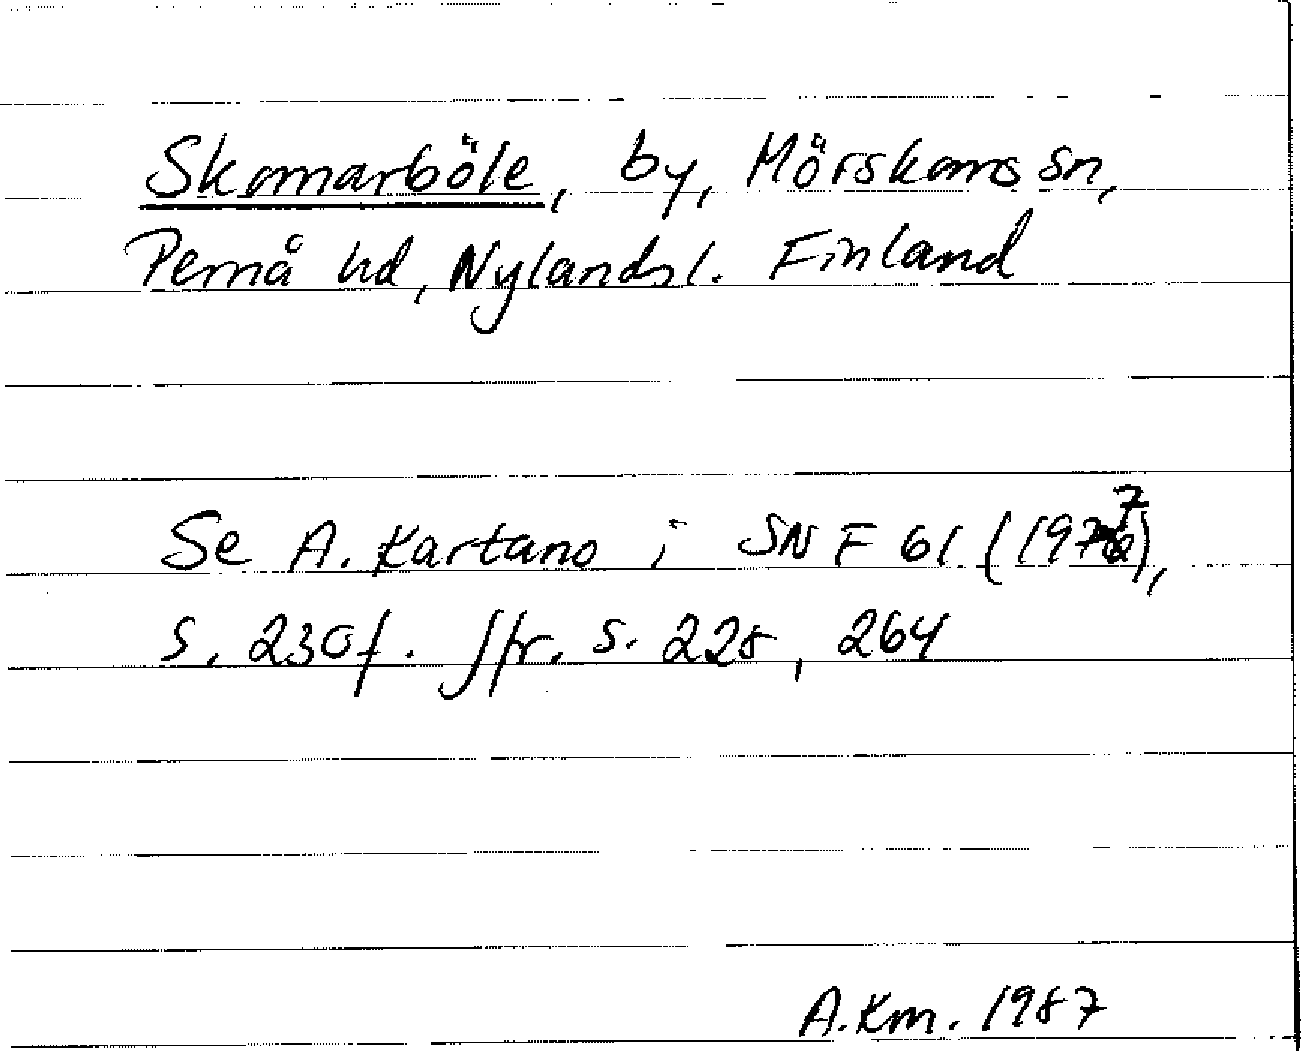 Skomarböle, by, Mörskoms sn,
Pernå hd, Nylands l. Finland
Se A. Kartano i SNF 61 (1977),
s. 230 f. Jfr. s. 228, 264
A.Km. 1987